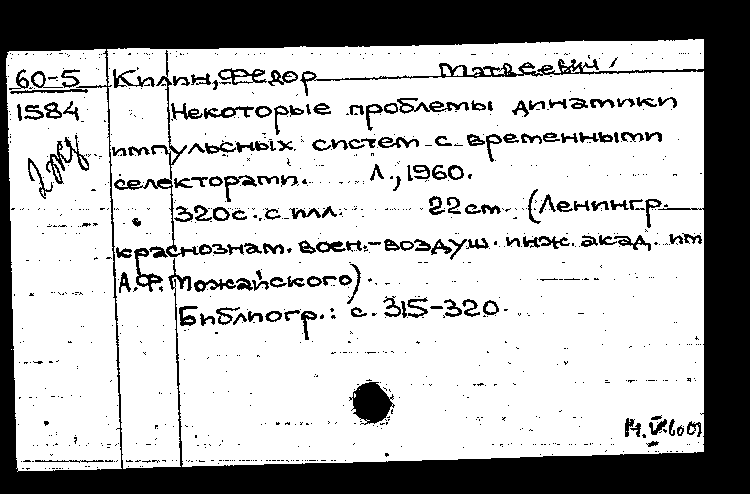 60-5 Килин, Федор Матвеевич,
1584 Некоторые проблемы динамики
импульсных систем с временными
селекторами. Л., 1960.
320с. с илл. 22см. (Ленингр.
краснознам. воен.-воздуш. инж. акад. им
А.Ф. Можайского).
Библиогр.: с. 315-320.